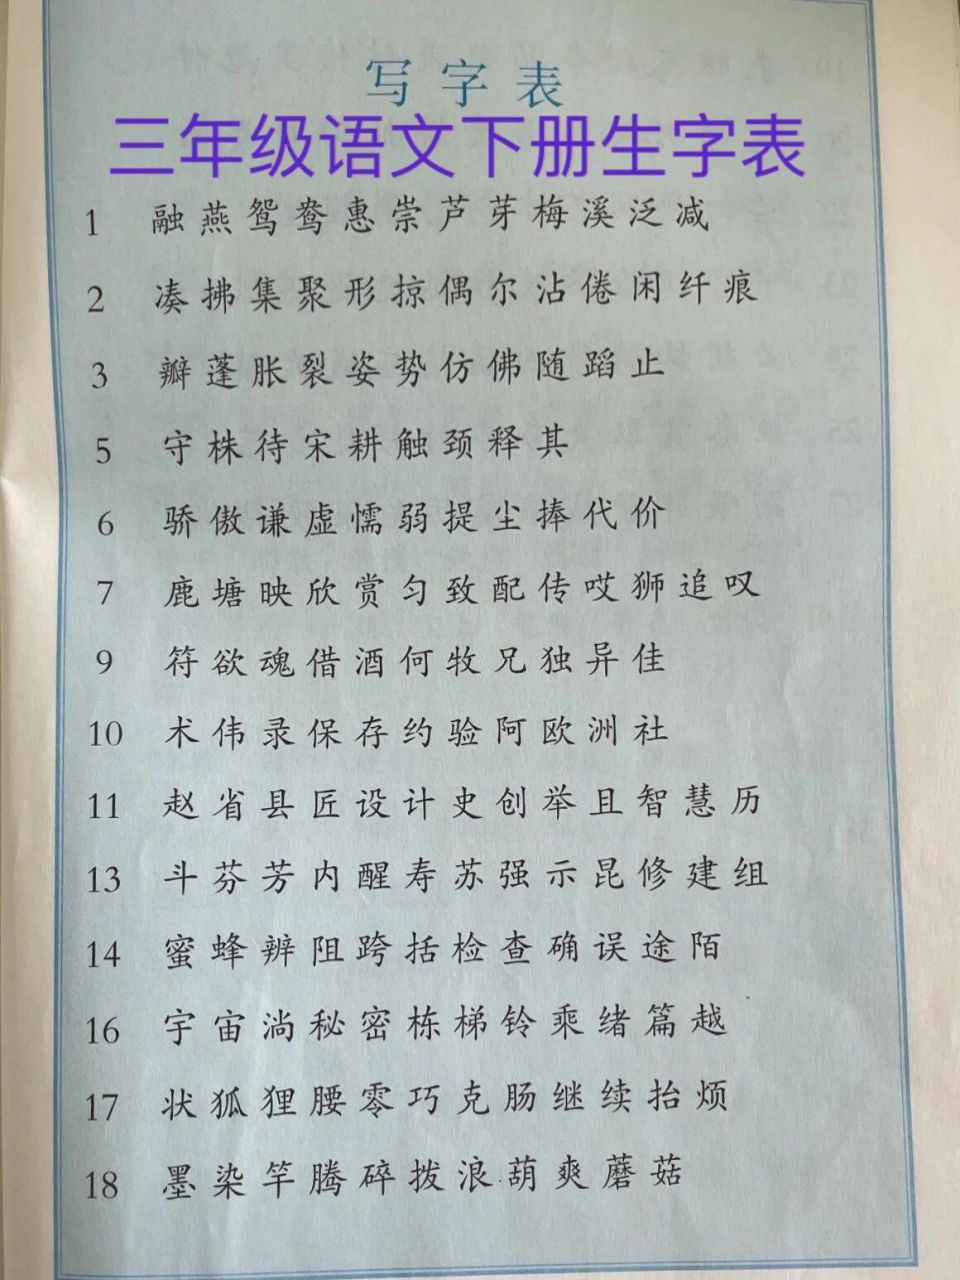 写字表
三年级语文下册生字表
1 融燕鸳鸯惠崇芦芽梅溪泛减
2 凑拂集聚形掠偶尔沾倦闲纤痕
3 瓣蓬胀裂姿势仿佛随蹈止
5 守株待宋耕触颈释其
6 骄傲谦虚懦弱提尘捧代价
7 鹿塘映欣赏匀致配传哎狮追叹
9 符欲魂借酒何牧兄独异佳
10 术伟录保存约验阿欧洲社
11 赵省县匠设计史创举且智慧历
13 斗芬芳内醒寿苏强示昆修建组
14 蜜蜂辨阻跨括检查确误途陌
16 宇宙淌秘密栋梯铃乘绪篇越
17 状狐狸腰零巧克肠继续抬烦
18 墨染竿腾碎拨浪葫爽蘑菇